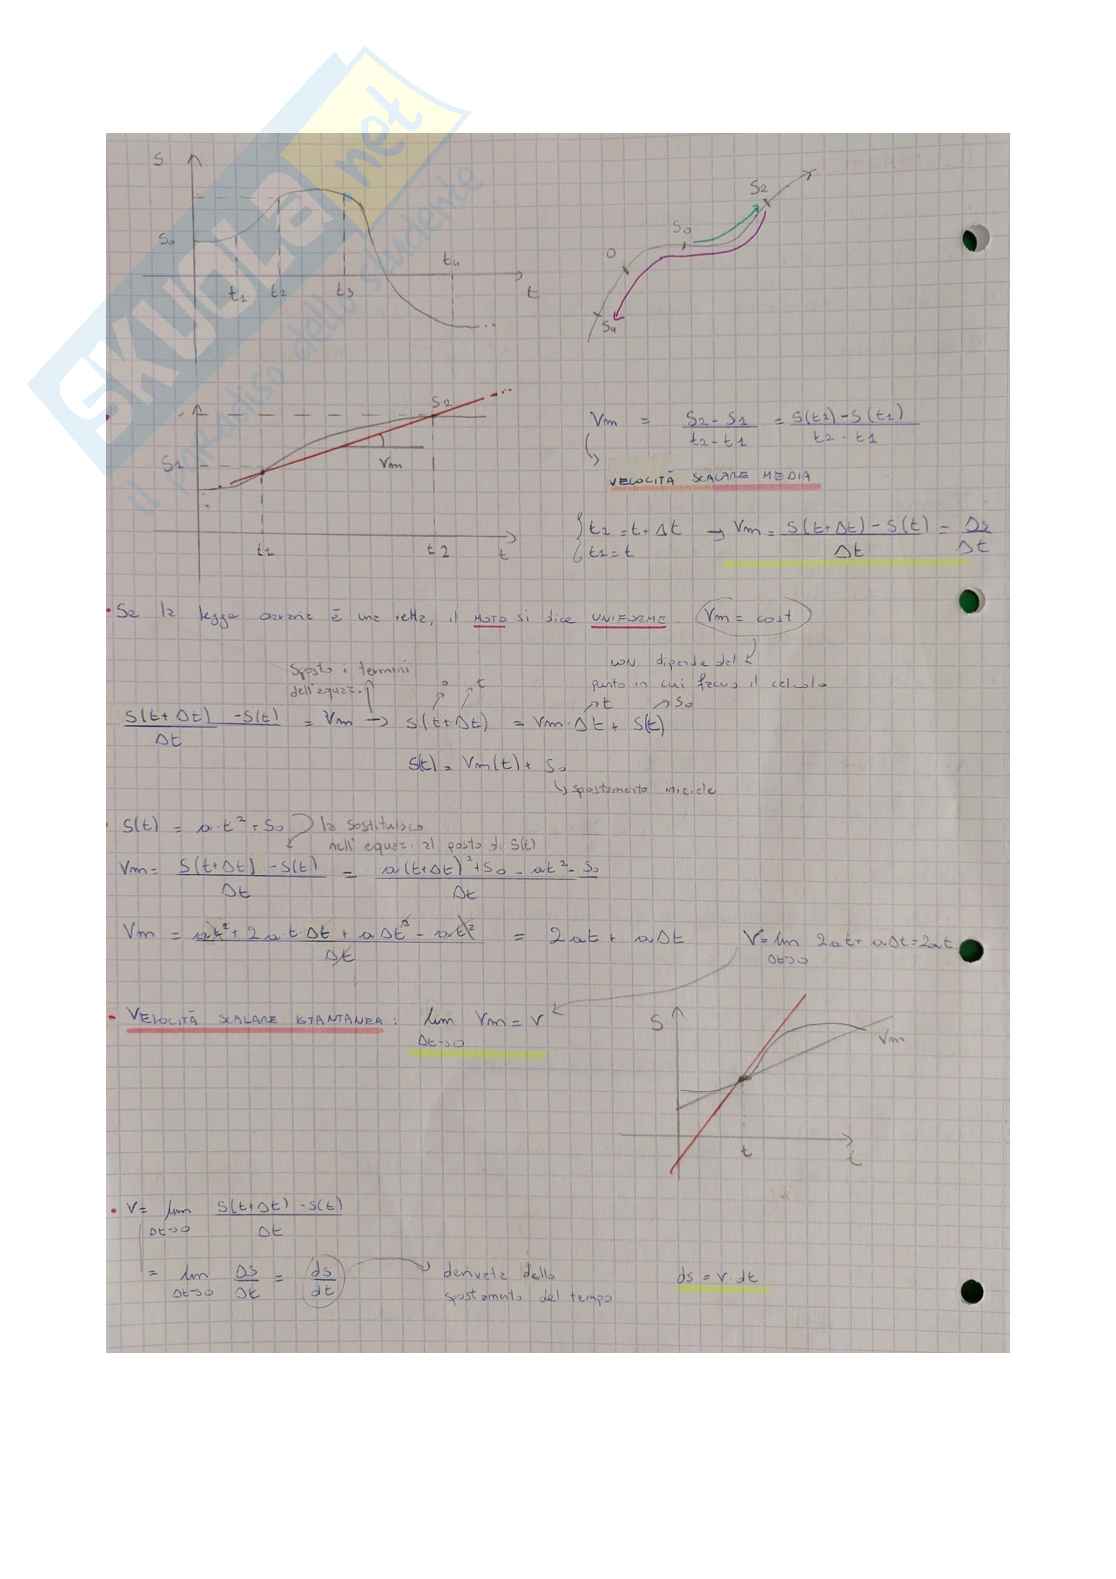 SKUOLA.net
il paradiso dello studente
S
S0
t1 t2 t3 t4 t
S2
S0
O
S4
S2
S1
Vm
t1 t2 t
Vm = S2 - S1 / t2 - t1 = S(t2) - S(t1) / t2 - t1
VELOCITÀ SCALARE MEDIA
{ t2 = t + Δt → Vm = S(t+Δt) - S(t) / Δt = Δs / Δt
t1 = t
• Se la legge oraria è una retta, il MOTO si dice UNIFORME. Vm = cost
NON dipende dal
punto in cui faccio il calcolo
Sposto i termini
dell'equaz.
o t
t S0
S(t+Δt) - S(t) / Δt = Vm → S(t+Δt) = Vm·Δt + S(t)
S(t) = Vm(t) + S0
↳ spostamento iniziale
S(t) = a·t² + S0 la sostituisco
nell'equaz. al posto di S(t)
Vm = S(t+Δt) - S(t) / Δt = a(t+Δt)² + S0 - at² - S0 / Δt
Vm = at² + 2at Δt + aΔt² - at² / Δt = 2at + aΔt
V = lim Δt→0 2at + aΔt = 2at
• VELOCITÀ SCALARE ISTANTANEA: lim Δt→0 Vm = V
S
Vm
t t
• V = lim Δt→0 S(t+Δt) - S(t) / Δt
= lim Δt→0 Δs / Δt = ds / dt
derivata dello
spostamento del tempo
ds = v·dt